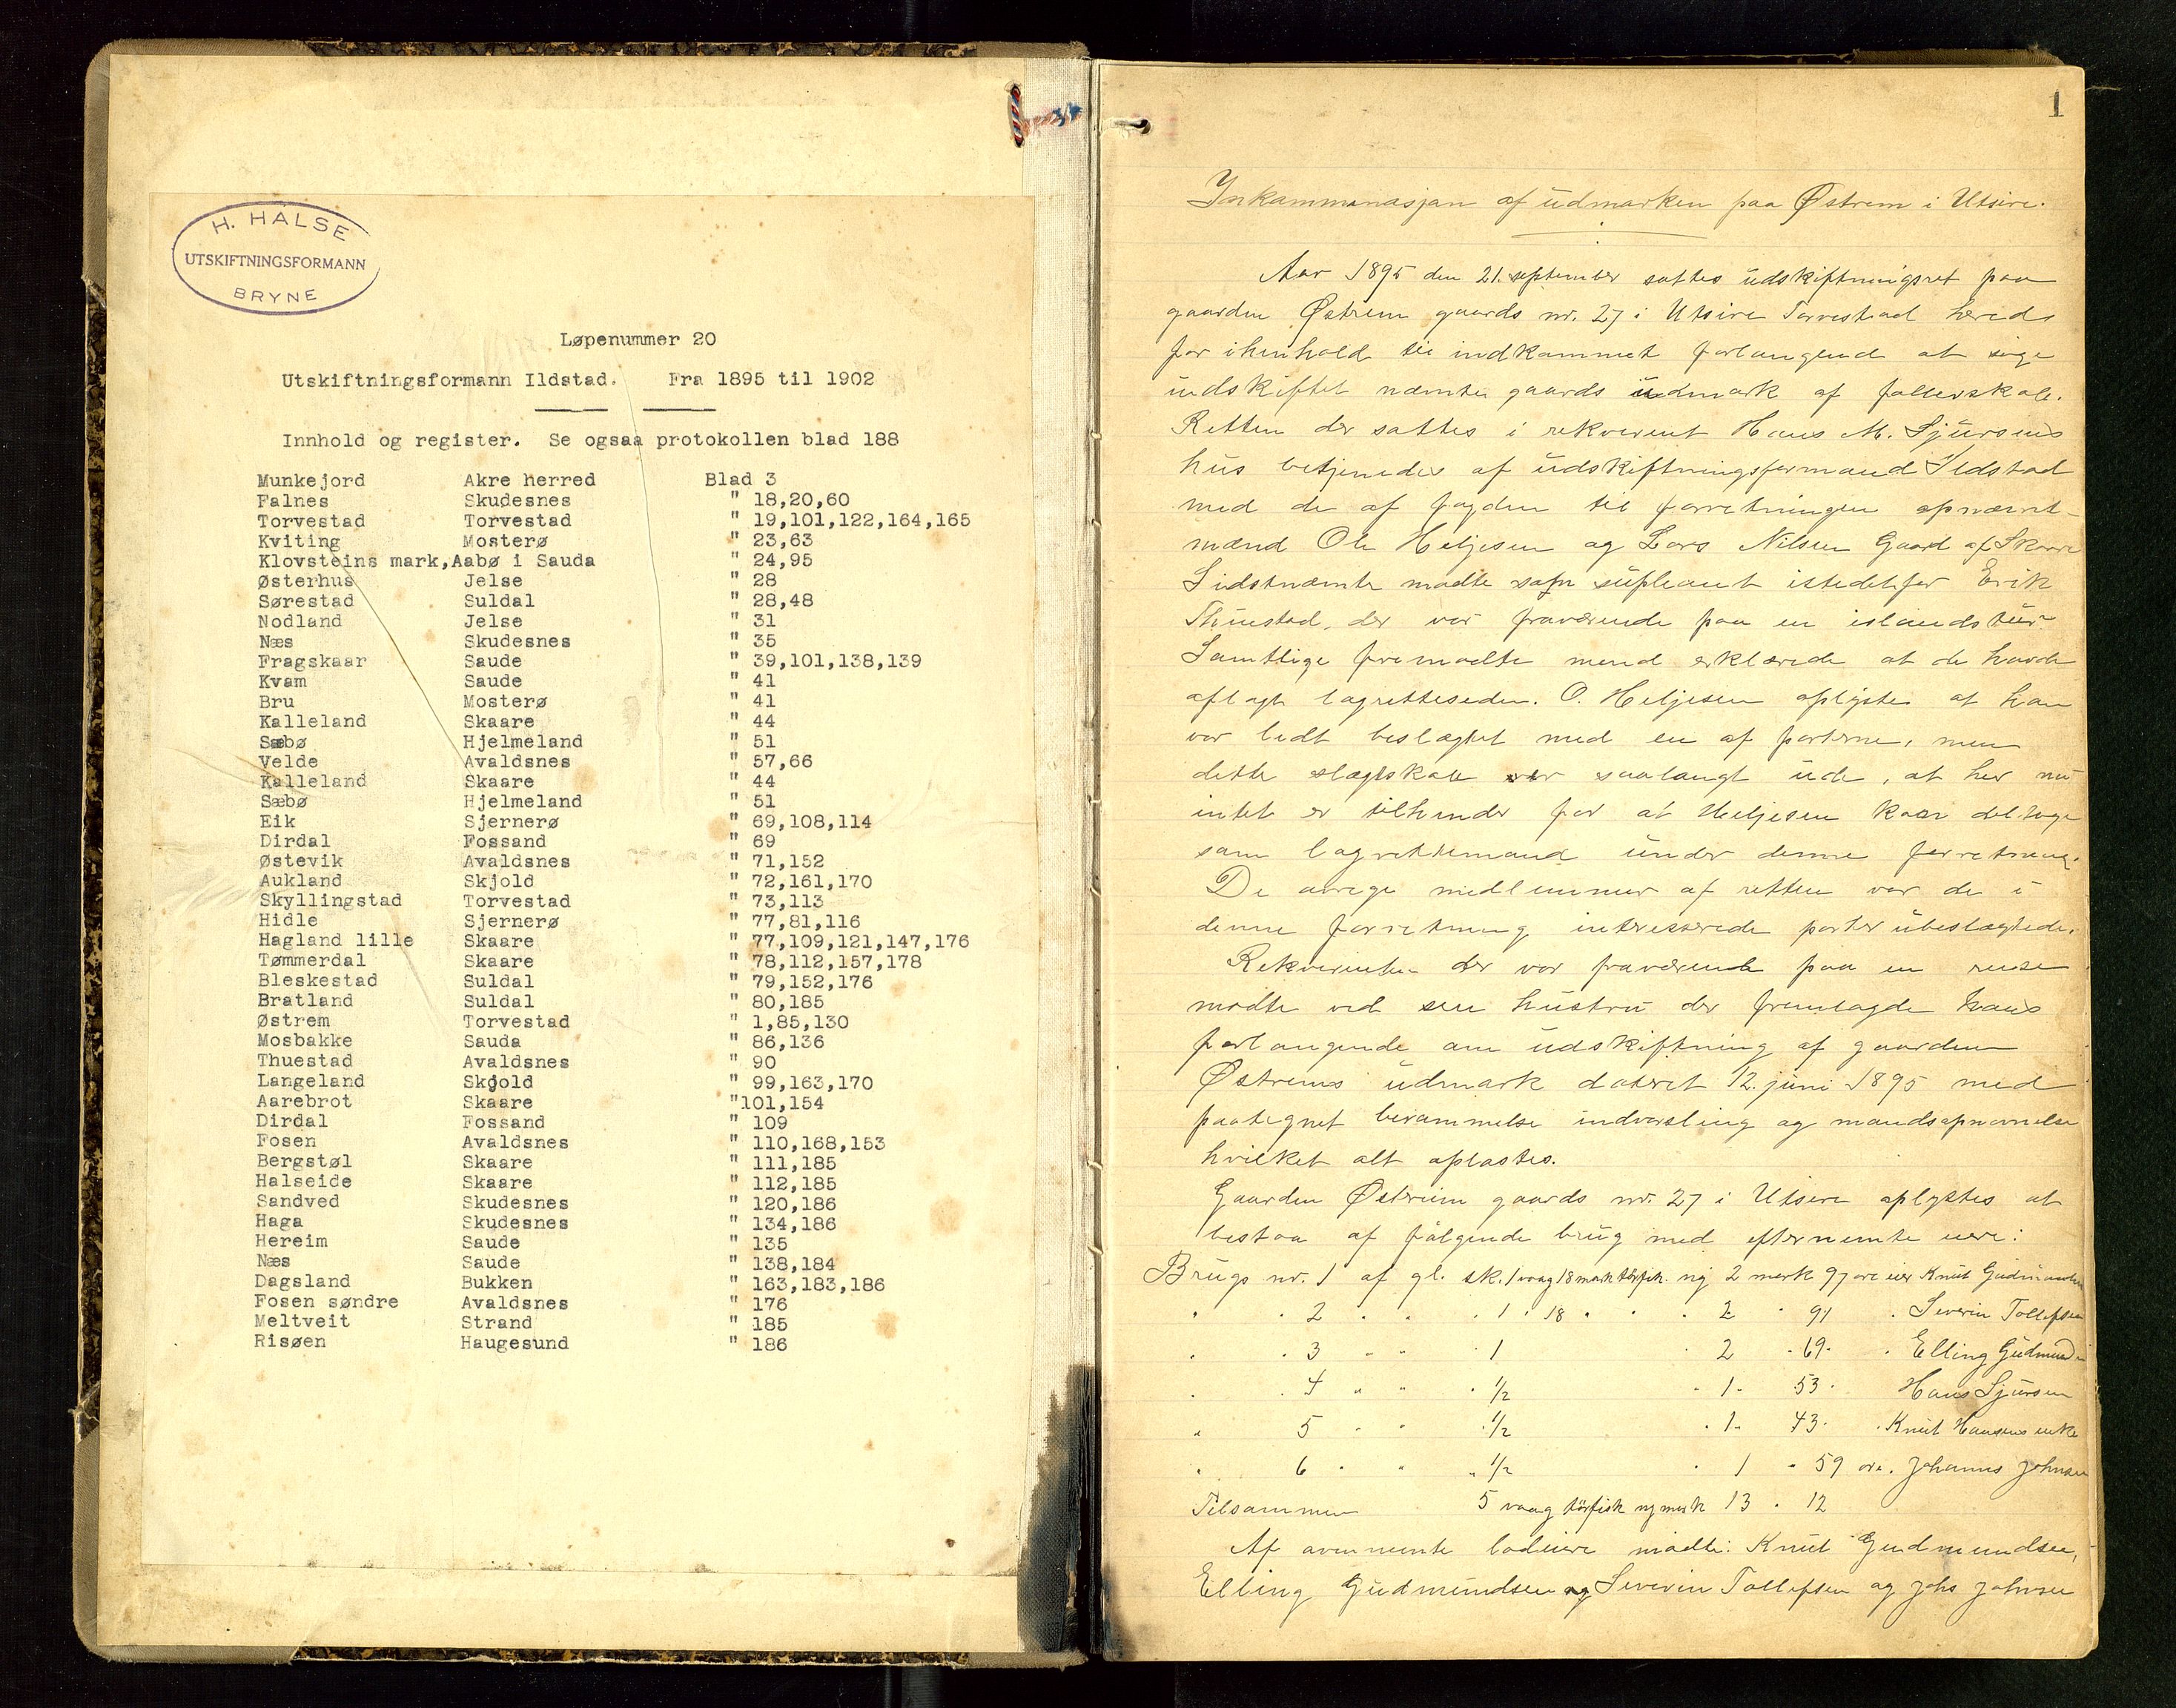 H. HALSE
UTSKIFTNINGSFORMANN
BRYNE
Løpenummer 20
Utskiftningsformann Ildstad. Fra 1895 til 1902
Innhold og register. Se ogsaa protokollen blad 188
Munkejord Akre herred Blad 3
Falnes Skudesnes " 18,20,60
Torvestad Torvestad " 19,101,122,164,165
Kviting Mosterø " 23,63
Klovsteins mark,Aabø i Sauda " 24,95
Østerhus Jelse " 28
Sørestad Suldal " 28,48
Nodland Jelse " 31
Næs Skudesnes " 35
Fragskaar Saude " 39,101,138,139
Kvam Saude " 41
Bru Mosterø " 41
Kalleland Skaare " 44
Sæbø Hjelmeland " 51
Velde Avaldsnes " 57,66
Kalleland Skaare " 44
Sæbø Hjelmeland " 51
Eik Sjernerø " 69,108,114
Dirdal Fossand " 69
Østevik Avaldsnes " 71,152
Aukland Skjold " 72,161,170
Skyllingstad Torvestad " 73,113
Hidle Sjernerø " 77,81,116
Hagland lille Skaare " 77,109,121,147,176
Tømmerdal Skaare " 78,112,157,178
Bleskestad Suldal " 79,152,176
Bratland Suldal " 80,185
Østrem Torvestad " 1,85,130
Mosbakke Sauda " 86,136
Thuestad Avaldsnes " 90
Langeland Skjold " 99,163,170
Aarebrot Skaare "101,154
Dirdal Fossand " 109
Fosen Avaldsnes " 110,168,153
Bergstøl Skaare " 111,185
Halseide Skaare " 112,185
Sandved Skudesnes " 120,186
Haga Skudesnes " 134,186
Hereim Saude " 135
Næs Saude " 138,184
Dagsland Bukken " 163,183,186
Fosen søndre Avaldsnes " 176
Meltveit Strand " 185
Risøen Haugesund " 186
1
Inkamminasjan af üdmarken paa Østrem i Utsire.
Aar 1895 den 21. september sattes üdskiftningsret paa
gaarden Østrem gaards nr. 27 i Utsire Torvestad hereds
for i henhold til indkommet forlangend at
üdskiftet næmte gaards üdmark af fællesskab.
Retten der sattes i rekvirent Hans M. Sjürsens
hüs betjenedes af üdskiftningsformand Ildstad
med de af fogden til forretningen opnævnt
mænd Ole Heljesen og Lars Nilsen Gaard af Skaare
Sidstnæmte mødte som süpleant istedetfor Erik
Thüestad, der var fraværende paa en islandstür
Samtlige fremødte mænd erklærede at de havde
aflagt lagretteseden. O. Heljesen oplyste at han
var lidt beslægtet med en af parterne, men
dette slægtskab er saalangt üde, at her nü
intet er tilhinder for at Heljesen kan deltage
som lagrettemand ünder denne forretning.
De øvrige medlemmer af retten var de i
denne forretning interesserede parter übeslægtede.
Rekvirenten der var fraværende paa en reise
mødte ved sin hüstrü der fremlagde hans
forlangende om üdskiftning af gaarden
Østrems üdmark dateret 12. jüni 1895 med
paategnet berammelse indvarsling og mandsopnævnelse
hvilket alt oplæstes.
Gaarden Østreim gaards nr. 27 i Utsire oplystes at
bestaa af følgende brüg med efternemte eiere:
Brügs nr. 1 af gl. sk. 1 vaag 18 mark törfisk. ny 2 mark 97 øre eier Knüt Güdmundsen
" " 2 " " " 1 " 18 " " " 2 " 91 " Severin Tollefsen
" " 3 " " " 1 " 2 " 69 " Elling Güdmunds
" " 4 " " " 1/2 " 1 " 53 " Hans Sjürsen
" " 5 " " " 1/2 " 1 " 43 " Knüt Hansens enke
" " 6 " " " 1/2 " 1 " 59 øre. Johannes Johnsen
Tilsammen 5 vaag törfisk ny mark 13 " 12
Af ovennemte lodeiere mødte: Knüt Gudmundsen,
Elling Güdmündsen og Severin Tollefsen og Johs Johnsen